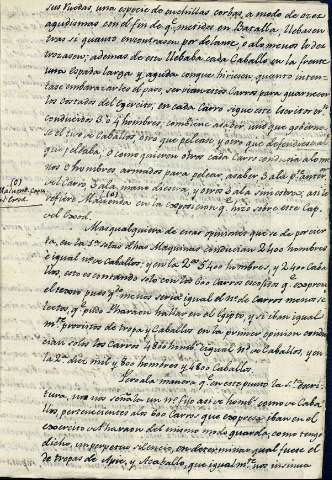 sus Ruedas, una especie de cuchillas corbas, a modo de ozes
agudisimas con el fin de qᵉ metidos en Batalla, llebasen
tras si quanto encontrasen por delante, o alo menos lo des
trozasen; ademas de esto llebaba cada Caballo en la frente
una espada larga, y aguda conque hiriesen quanto inten
tase embarazarles el paso, servian estos Carros para guarnecer
los costados del Egercito, en cada Carro sigue este Escritor
conducidos 3 o 4 hombres; combiene a saber, uno que goberna
se el tiro de Caballos sino que pelease y otro que defendiese al
que peleaba, o como quieren otros cada Carro conducia alome
nos 9 hombres armados para pelear, a saber 3 ala pᵗᵉ anterior
del Carro 3 ala mano diestra, y otros 3 ala siniestra, asi lo
refiere Malvenda en la exposicion qᵉ hizo sobre este Cap.
del Exod.
Mas qualquiera de estas opiniones que se de por cier
ta, en la 1ª estas dhas Maquinas conducian 2400 hombres
e igual nº de Caballos; y en la 2ª 5400 hombres, y 2400 Caba
llos, esto es contando solo con los 600 Carros escojidos qᵉ expresa
el texto pues qᵉ no menos seria igual el nº de Carros menos se
lectos qᵉ pudo Pharaon hallar en el Egipto, y si iban igual
mᵗᵉ provistos de tropa y Caballos en la primer opinion condu
cian solos los Carros 4800 homb. e igual nº de Caballos, y en
la 2ª diez mil y 800 hombres y 4800 Caballos.
Pero ala manera qᵉ en este punto la Sᵗᵃ Escri
tura, no nos señala un nº fijo asi de homb. como de Caba
llos, pertenecientes alos 600 Carros que expresa iban en el
exercito de Pharaon del mismo modo guarda, como tengo
dicho, un perpetuo silencio, en determinar qual fuese el
de tropas de Apie, y Acaballo, que igualmᵗᵉ nos insinua
Malvend. Expos.
del Exod.